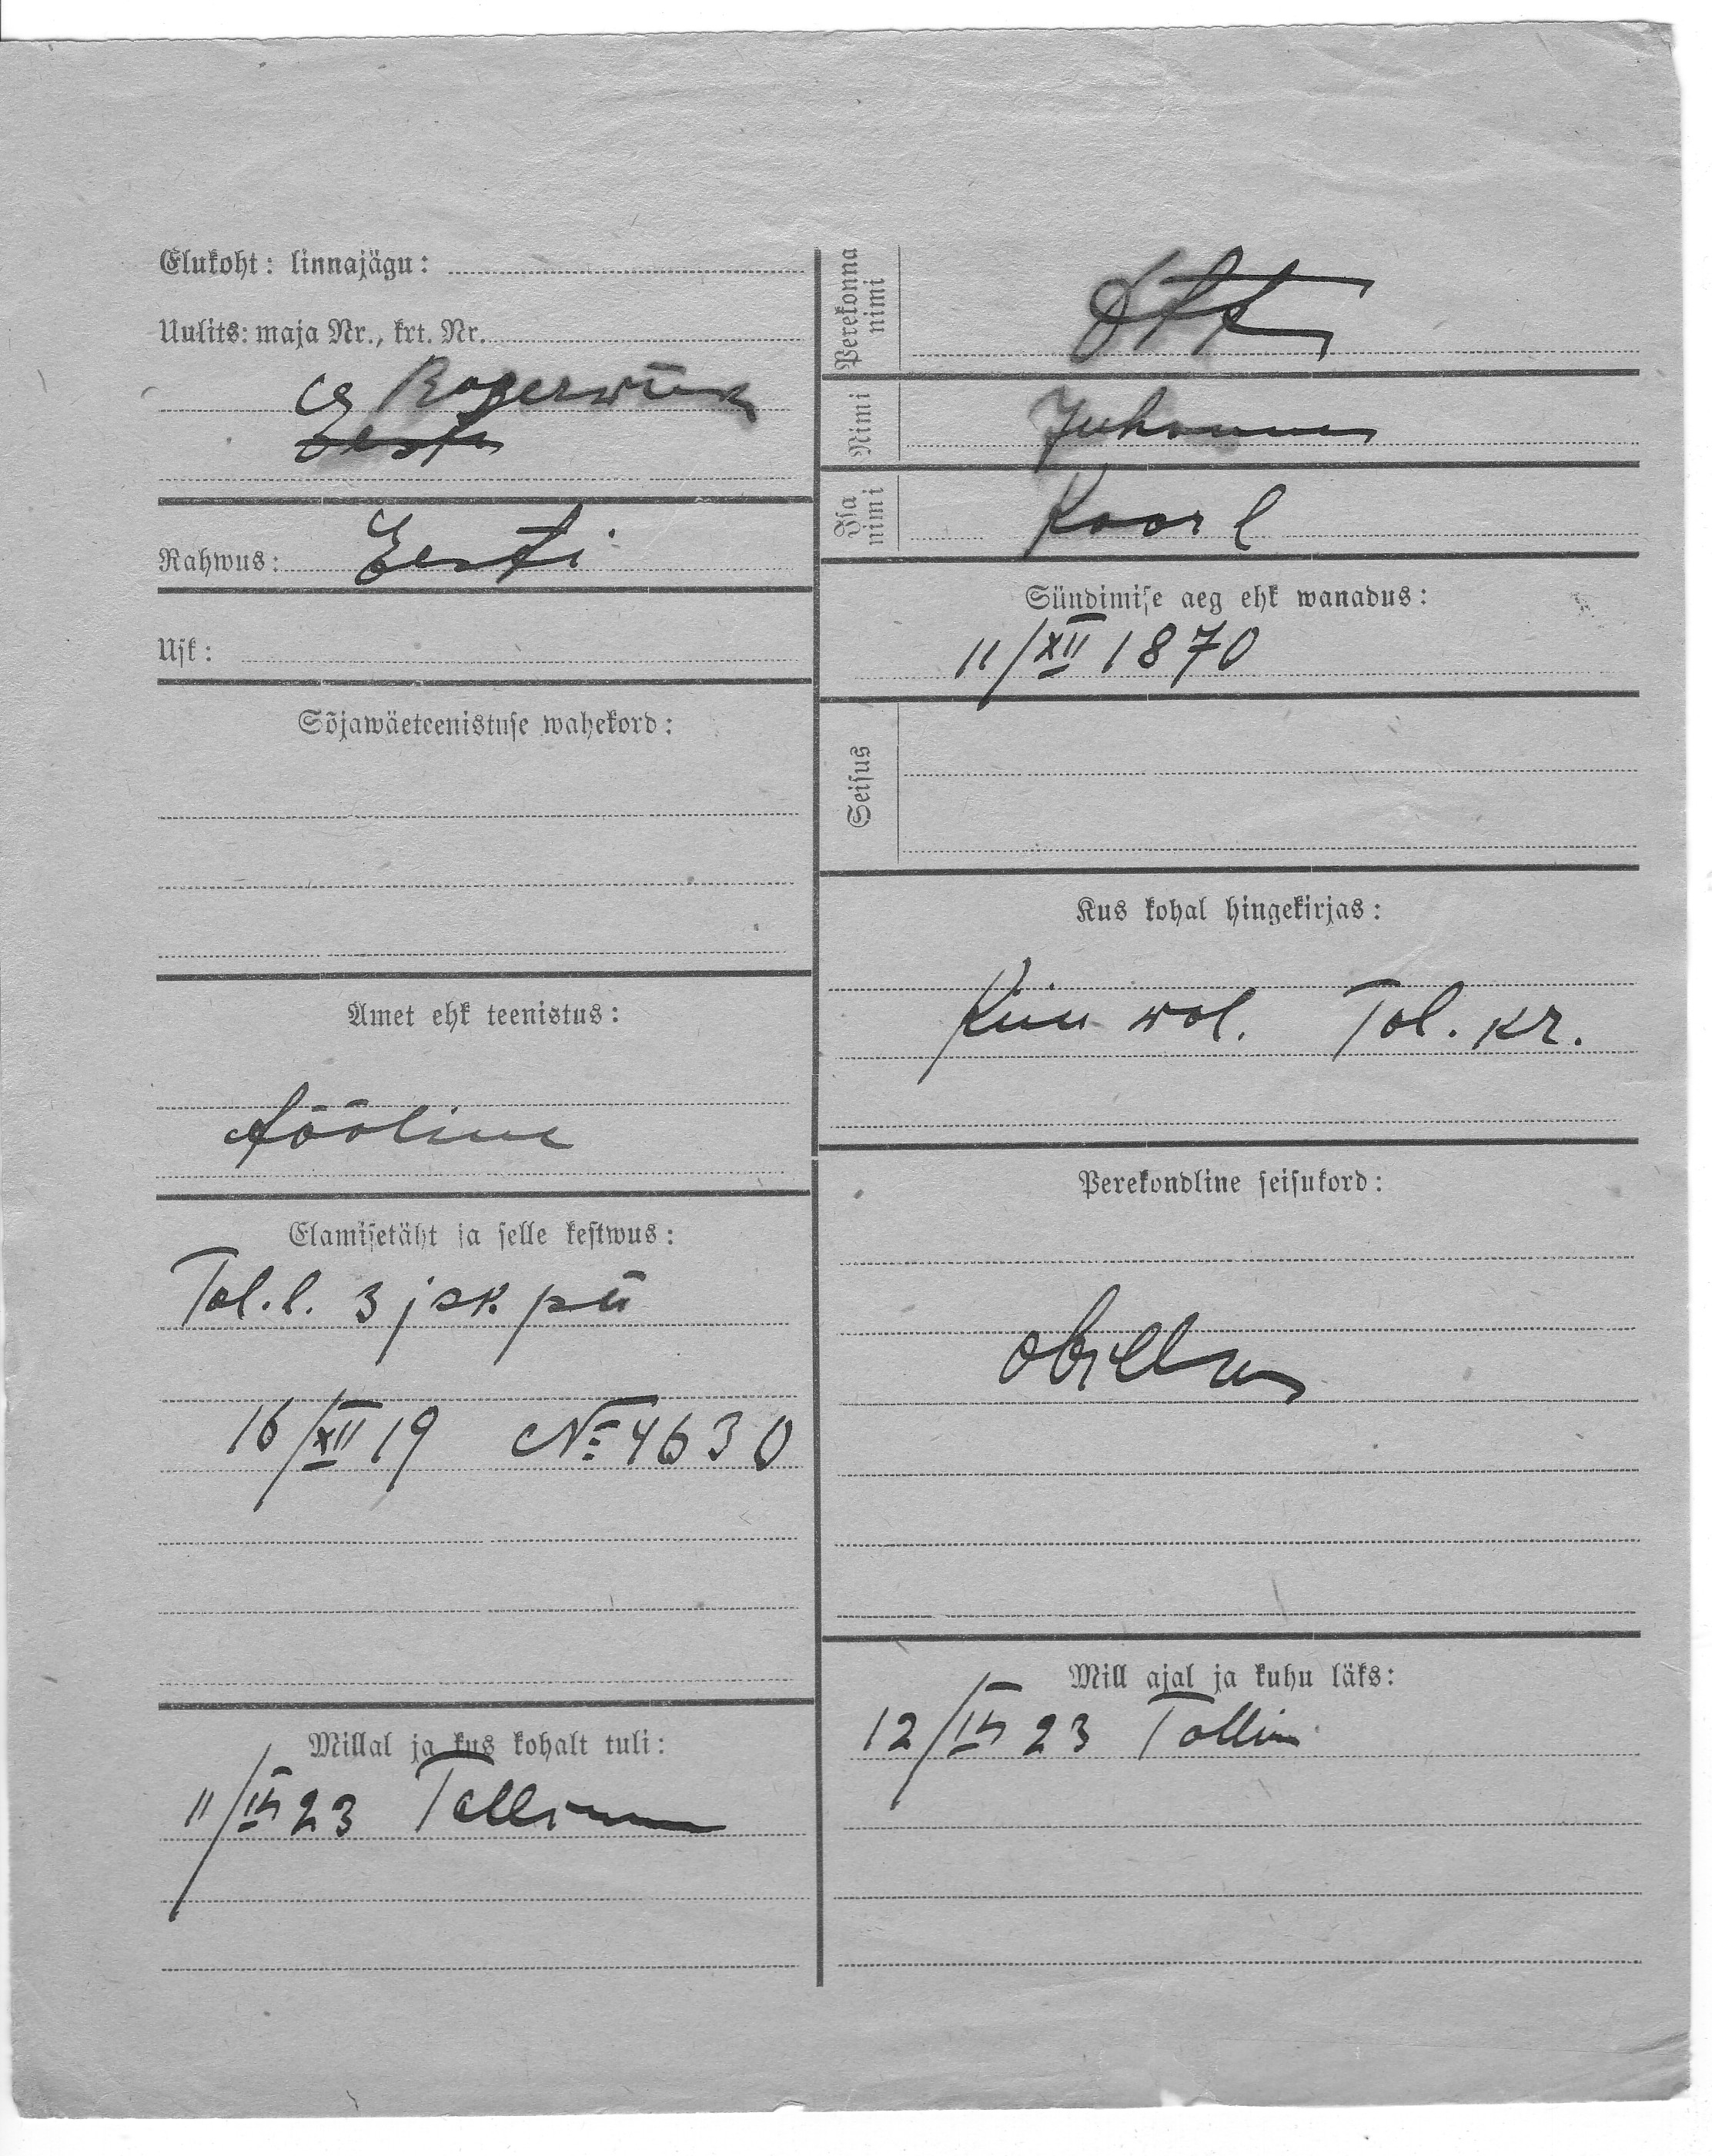 Elukoht: linnajägu:
Uulits: maja Nr., krt. Nr.
Rogerwiik
Rahwus: Eesti
Usk:
Sõjawäeteenistuse wahekord:
Amet ehk teenistus:
tööline
Elamisetäht ja selle kestwus:
Tal. l. 3 jsk. pü
16/XII 19 № 4630
Millal ja kus kohalt tuli:
23 Tallinna
Perekonna nimi
Ott
Nimi Juhannes
Isa nimi Kaarl
Sündimise aeg ehk wanadus:
11/XII 1870
Seisus
Kus kohal hingekirjas:
wal. Tal. kr.
Perekondline seisukord:
abielus
Mill ajal ja kuhu läks:
23 Tallinn